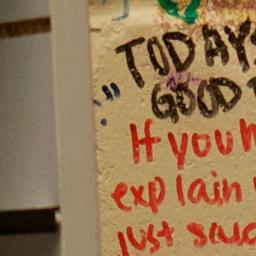 TODAYS
GOOD
If you
explain
just said